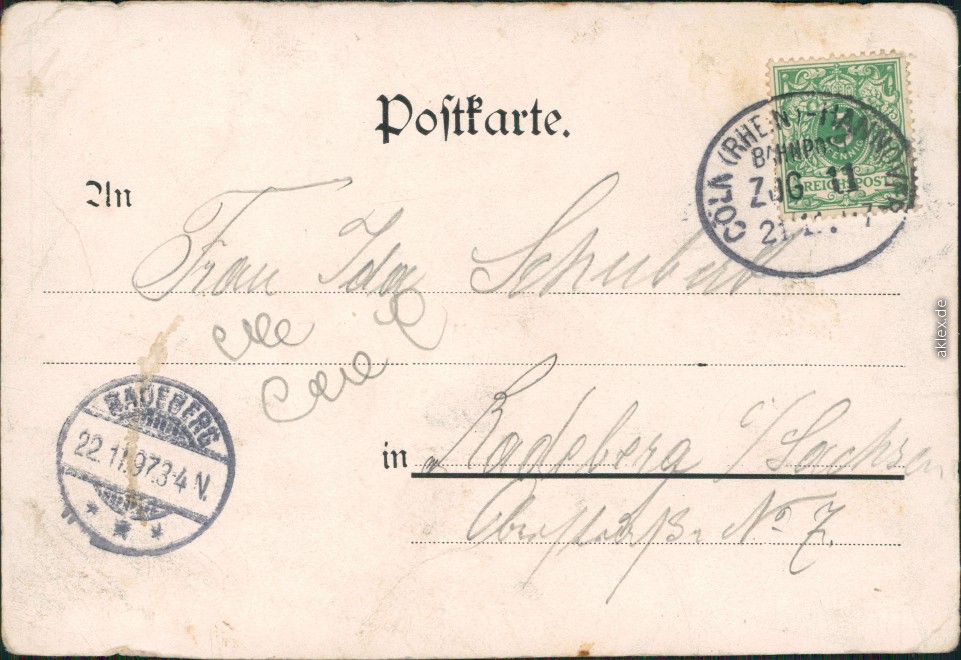 Postkarte.
CÖLN (RHEIN)-HANNOVER
BAHNPOST
ZUG 11
21.11.97
PFENNIG
REICHSPOST
An
Frau Ida Schubert
in Radeberg i/Sachsen
No 7.
RADEBERG
22.11.97.3-4 V.
aklex.de